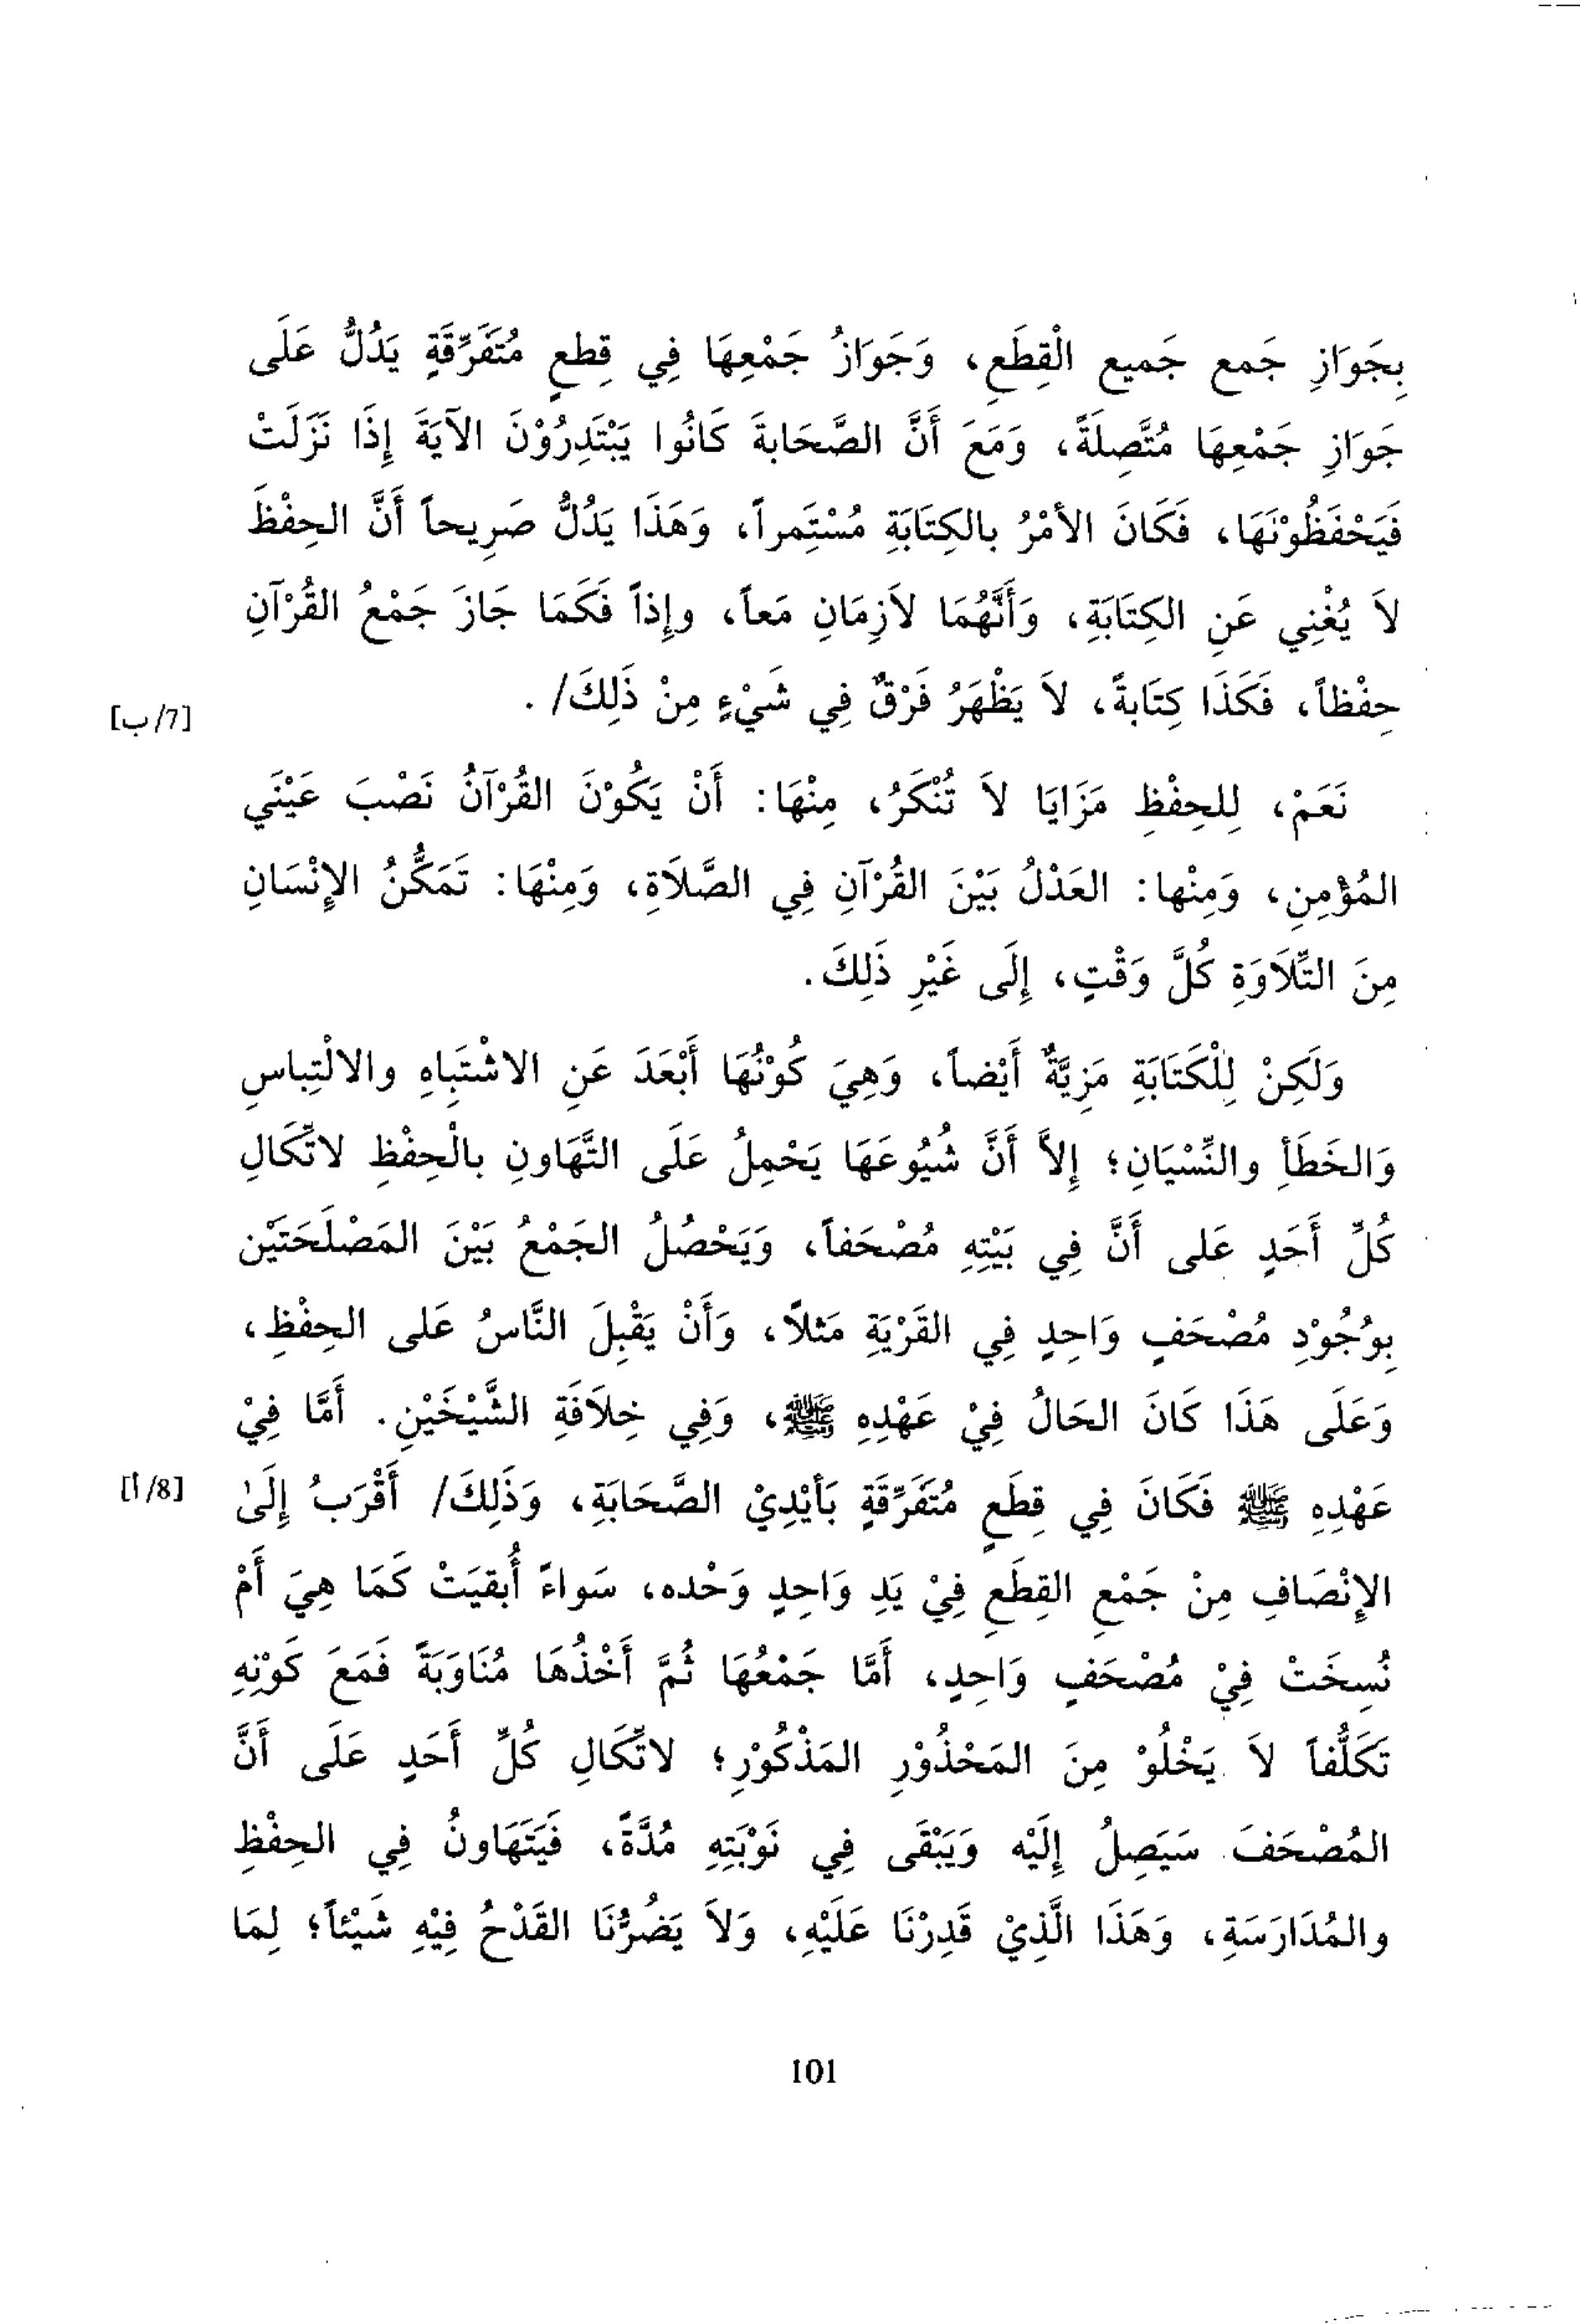 بِجَوَازِ جَمع جَميع الْقِطَعِ، وَجَوَازُ جَمْعِهَا فِي قِطعٍ مُتَفَرِّقَةٍ يَدُلُّ عَلَى
جَوَازِ جَمْعِهَا مُتَّصِلَةً، وَمَعَ أَنَّ الصَّحَابةَ كَانُوا يَبْتَدِرُوْنَ الآيَةَ إِذَا نَزَلَتْ
فَيَحْفَظُوْنَهَا، فَكَانَ الأمْرُ بالكِتَابَةِ مُسْتَمِراً، وَهَذَا يَدُلُّ صَرِيحاً أَنَّ الحِفْظَ
لاَ يُغْنِي عَنِ الكِتَابَةِ، وَأَنَّهُمَا لاَزِمَانِ مَعاً، وإِذاً فَكَمَا جَازَ جَمْعُ القُرْآنِ
حِفْظاً، فَكَذَا كِتَابةً، لاَ يَظْهَرُ فَرْقٌ فِي شَيْءٍ مِنْ ذَلِكَ/ .
[7/ب]
نَعَمْ، لِلحِفْظِ مَزَايَا لاَ تُنْكَرُ، مِنْهَا: أَنْ يَكُوْنَ القُرْآنُ نَصْبَ عَيْنَي
المُؤْمِنِ، وَمِنْها: العَدْلُ بَيْنَ القُرْآنِ فِي الصَّلاَةِ، وَمِنْهَا: تَمَكُّنُ الإِنْسَانِ
مِنَ التِّلاَوَةِ كُلَّ وَقْتٍ، إِلَى غَيْرِ ذَلِكَ.
وَلَكِنْ لِلْكَتَابَةِ مَزِيَّةٌ أَيْضاً، وَهِيَ كُوْنُهَا أَبْعَدَ عَنِ الاشْتَبِاهِ والالْتِباسِ
وَالخَطَأِ والنِّسْيَانِ؛ إِلاَّ أَنَّ شُيُوعَهَا يَحْمِلُ عَلَى التَّهَاونِ بالْحِفْظِ لاتِّكَالِ
كُلِّ أَحَدٍ عَلى أَنَّ فِي بَيْتِهِ مُصْحَفاً، وَيَحْصُلُ الجَمْعُ بَيْنَ المَصْلَحَتَيْن
بِوُجُوْدِ مُصْحَفٍ وَاحِدٍ فِي القَرْيَةِ مَثلاً، وَأَنْ يَقْبِلَ النَّاسُ عَلى الحِفْظِ،
وَعَلَى هَذَا كَانَ الحَالُ فِيْ عَهْدِهِ ﷺ، وَفِي خِلاَفَةِ الشَّيْخَيْنِ. أَمَّا فِيْ
عَهْدِهِ ﷺ فَكَانَ فِي قِطَعٍ مُتَفَرِّقَةٍ بَأيْدِيْ الصَّحَابَةِ، وَذَلِكَ/ أَقْرَبُ إِلَىٰ
[8/أ]
الإِنْصَافِ مِنْ جَمْعِ القِطَعِ فِيْ يَدِ وَاحِدٍ وَحْده، سَواءً أُبقيَتْ كَمَا هِيَ أَمْ
نُسِخَتْ فِيْ مُصْحَفٍ وَاحِدٍ، أَمَّا جَمْعُهَا ثُمَّ أَخْذُهَا مُنَاوَبَةً فَمَعَ كَوْنِهِ
تَكَلُّفاً لاَ يَخْلُوْ مِنَ المَحْذُوْرِ المَذْكُوْرِ؛ لاتِّكَالِ كُلِّ أَحَدٍ عَلَى أَنَّ
المُصْحَفَ سَيَصِلُ إِلَيْه وَيَبْقَى فِي نَوْبَتِهِ مُدَّةً، فَيَتَهَاونُ فِي الحِفْظِ
والمُدَارَسَةِ، وَهَذَا الَّذِيْ قَدِرْنَا عَلَيْهِ، وَلاَ يَضُرُّنَا القَدْحُ فِيْهِ شَيْئاً؛ لِمَا
101